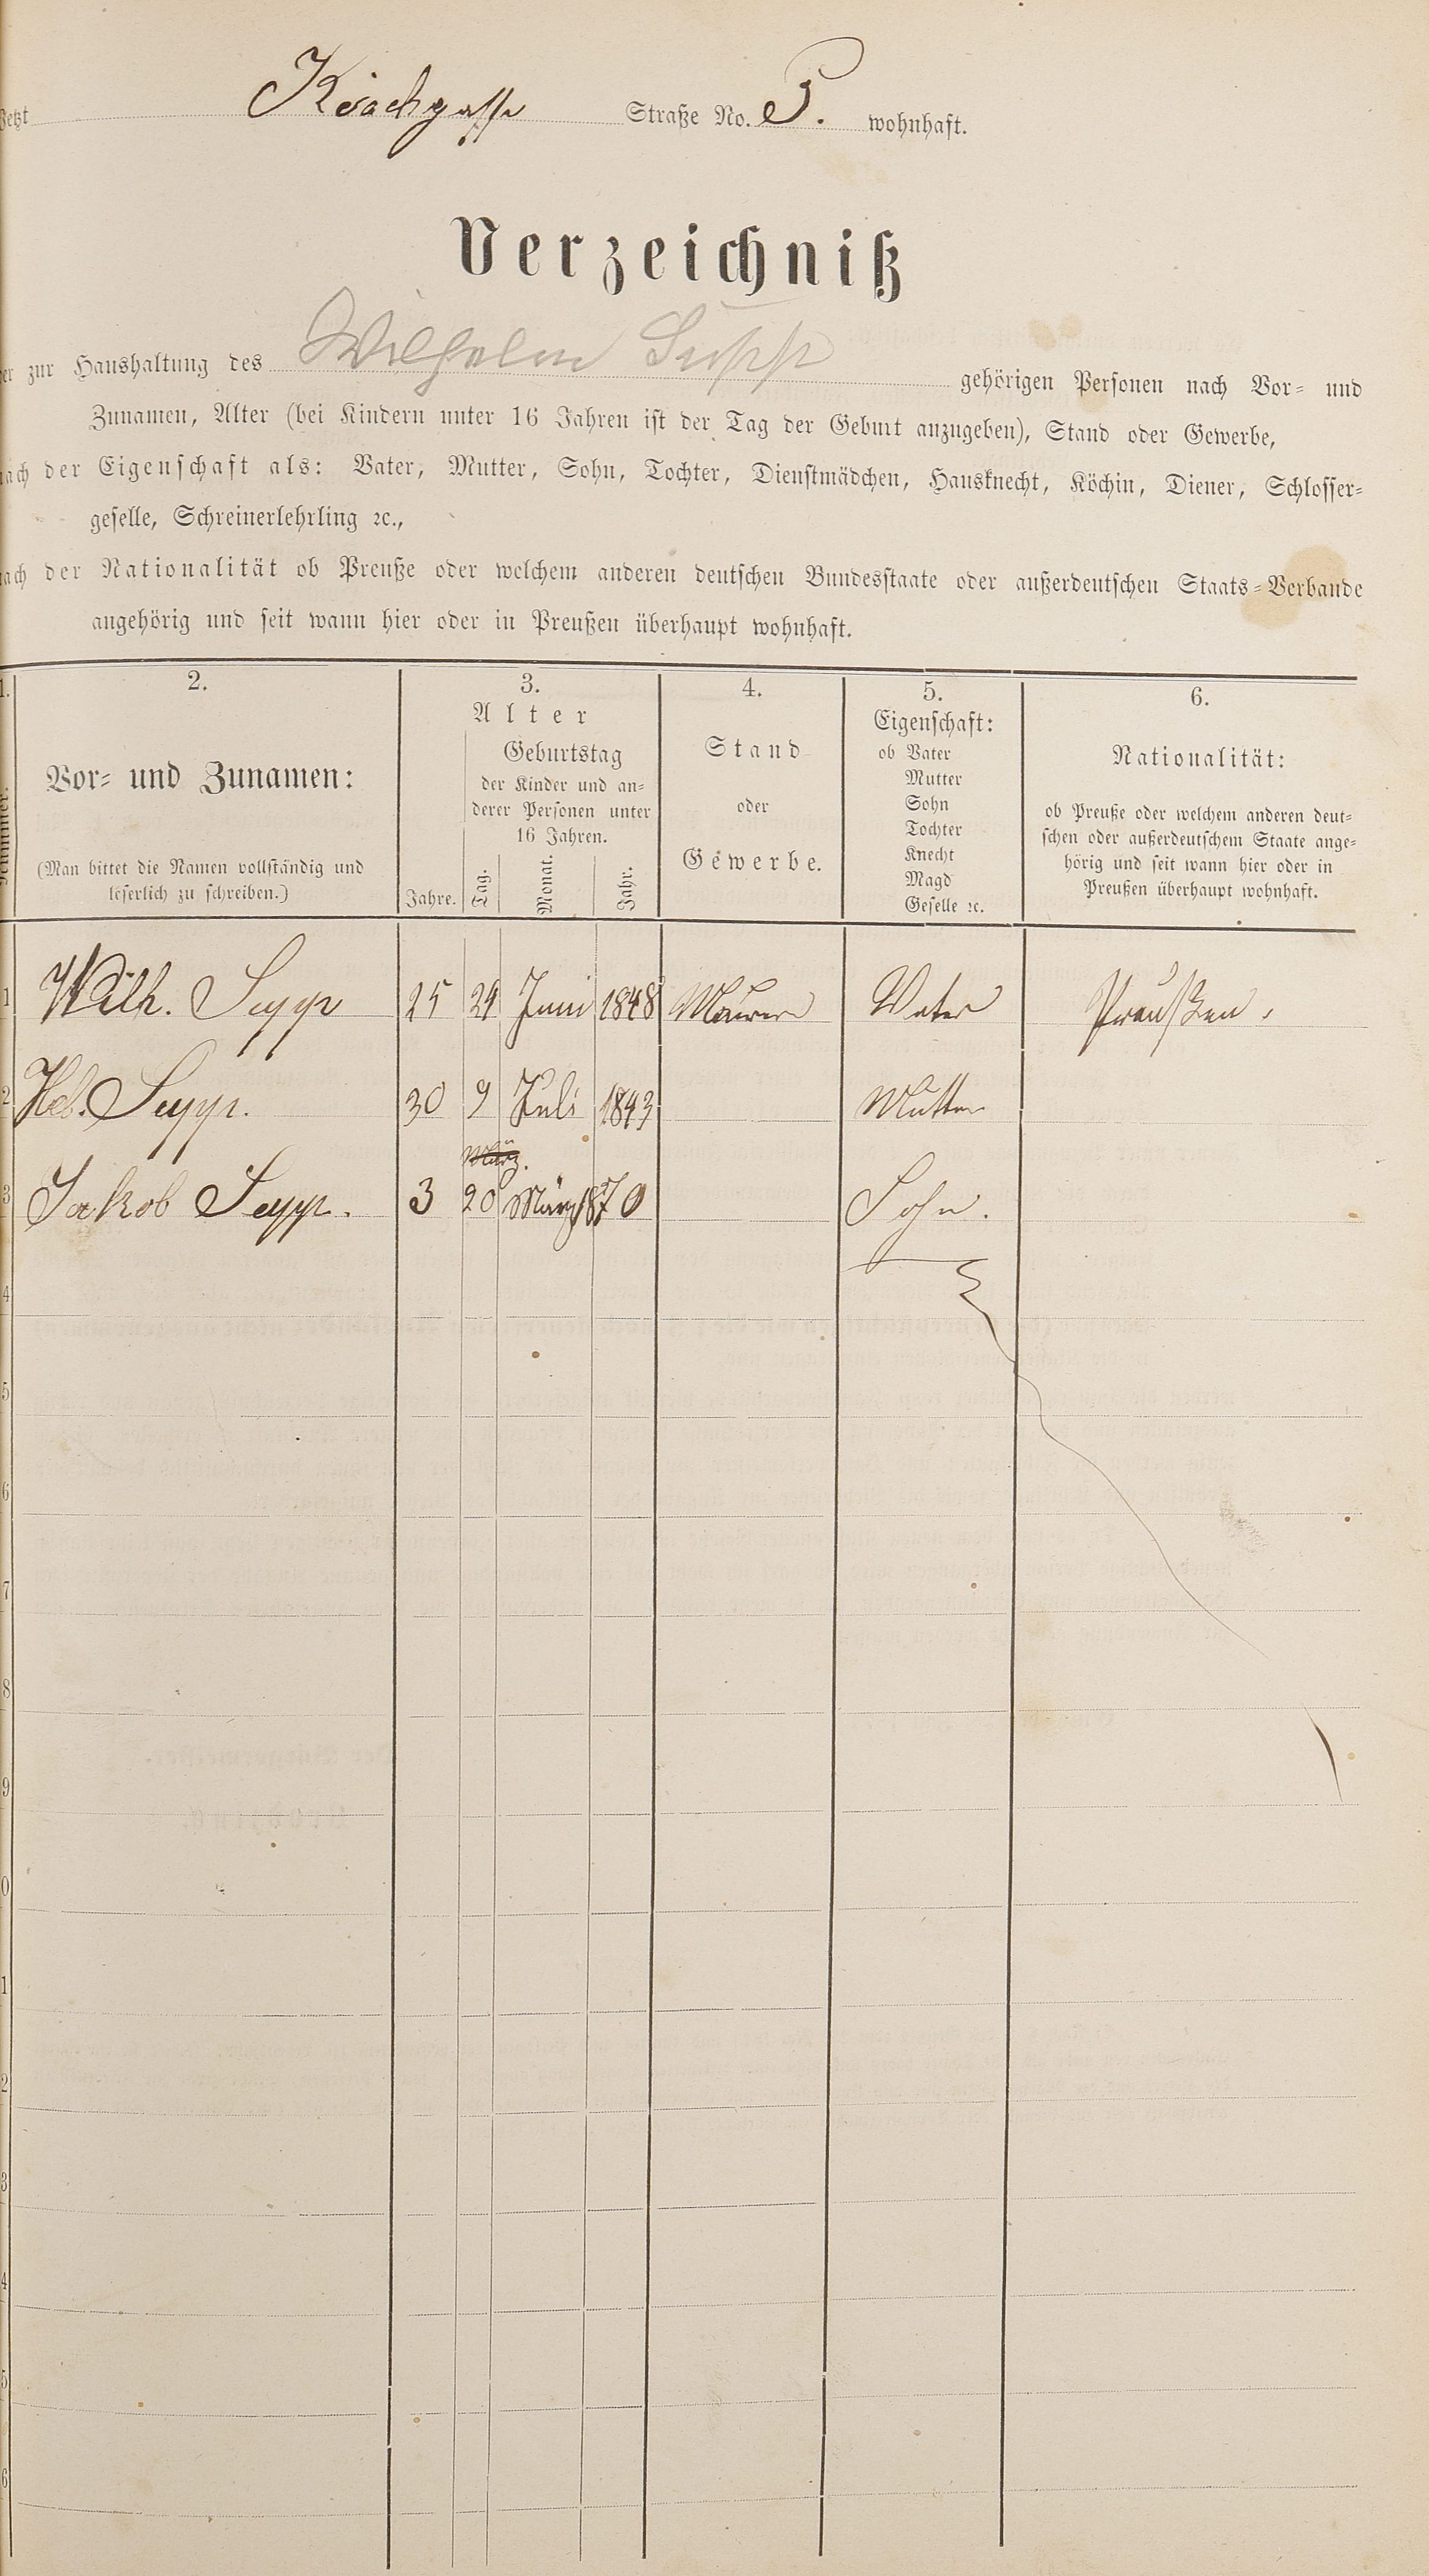 Jetzt Kirchgasse Straße No. 5. wohnhaft.
Verzeichniß
der zur Haushaltung des Wilhelm Supp gehörigen Personen nach Vor- und
Zunamen, Alter (bei Kindern unter 16 Jahren ist der Tag der Geburt anzugeben), Stand oder Gewerbe,
nach der Eigenschaft als: Vater, Mutter, Sohn, Tochter, Dienstmädchen, Hausknecht, Köchin, Diener, Schlosser-
geselle, Schreinerlehrling ꝛc.,
nach der Nationalität ob Preuße oder welchem anderen deutschen Bundesstaate oder außerdeutschen Staats-Verbande
angehörig und seit wann hier oder in Preußen überhaupt wohnhaft.
1. 2. 3. 4. 5. 6.
Nummer.
Vor- und Zunamen:
(Man bittet die Namen vollständig und
leserlich zu schreiben.)
Alter
Geburtstag
der Kinder und an-
derer Personen unter
16 Jahren.
Jahre. Tag. Monat. Jahr.
Stand
oder
Gewerbe.
Eigenschaft:
ob Vater
Mutter
Sohn
Tochter
Knecht
Magd
Geselle ꝛc.
Nationalität:
ob Preuße oder welchem anderen deut-
schen oder außerdeutschem Staate ange-
hörig und seit wann hier oder in
Preußen überhaupt wohnhaft.
1 Wilh. Supp 25 24 Juni 1848 Maurer Vater Preußen.
2 Supp. 30 9 Juli 1843 Mutter
März.
3 Jakob Supp. 3 20 März 1870 Sohn.
4
5
6
7
8
9
0
1
2
3
4
5
6